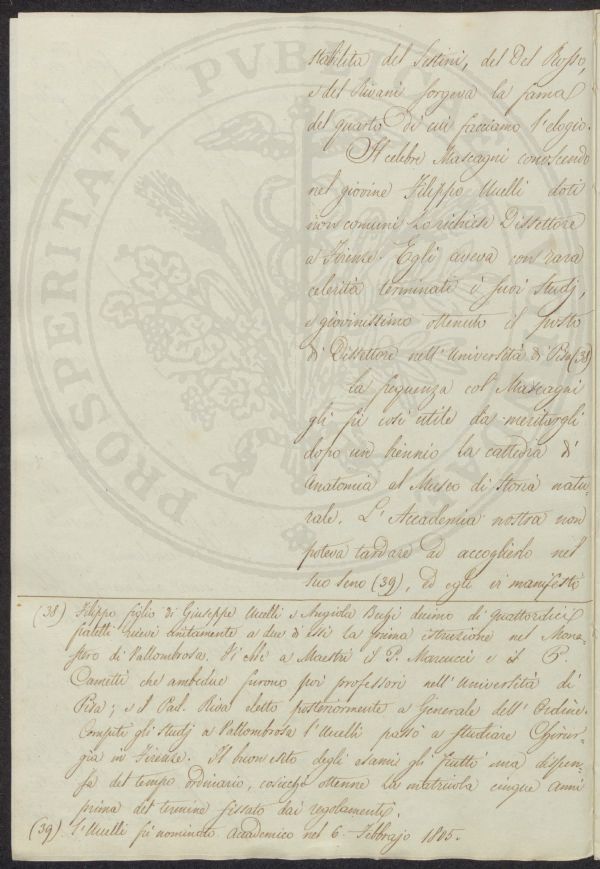 stabilita del Sestini, del Del Rosso,
e del Rivani sorgeva la fama
del quarto di cui facciamo l'elogio.
Il celebre Mascagni conoscendo
nel giovine Filippo Uccelli doti
non comuni Lo richiese Dissettore
a Firenze. Egli aveva con rara
celerità terminati i suoi studj,
e giovinissimo ottenuto il posto
di Dissettore nell'Università di Pisa (38)
La frequenza col Mascagni
gli fù così utile da meritargli
dopo un biennio la cattedra di
Anatomia al Museo di Storia natu-
rale. L'Accademia nostra non
poteva tardare ad accoglierlo nel
suo seno (39), Ed egli vi manifestò
(38) Filippo figlio di Giuseppe Uccelli e Angiola decimo di quattordici
fratelli ricevè unitamente a due di essi la prima istruzione nel Mona-
stero di Vallombrosa. Vi ebbe a Maestri il P. Marcucci e il P.
Camitti che ambedue furono poi professori nell'Università di
Pisa; e il Pad. Riva eletto posteriormente a Generale dell'Ordine.
Compite gli studj a Vallombrosa l'Uccelli passò a studiare Chirur-
gia in Firenze. Il buon esito degli esami gli fruttò una dispen-
sa del tempo ordinario, cosicchè ottenne la matricola cinque anni
prima del termine fissato dai regolamenti.
(39) L'Uccelli fù nominato Accademico nel 6. Febbrajo 1805.
PROSPERITATI PUBLICAE AUGENDAE